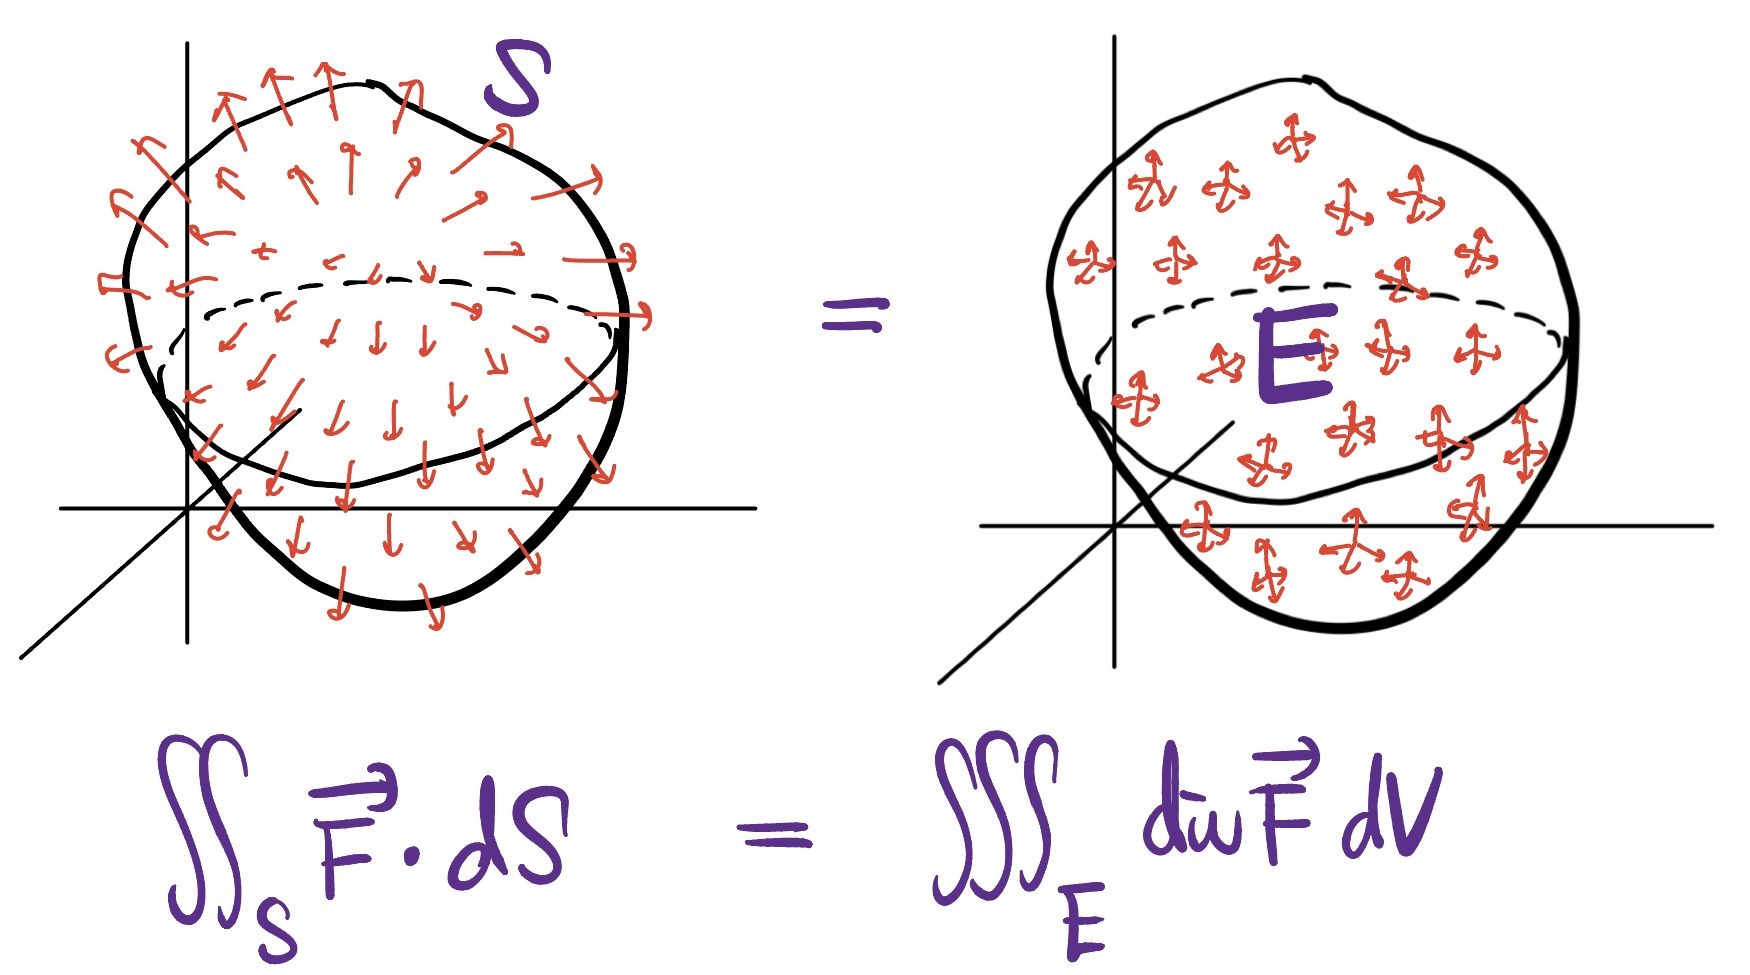 S
=
E
∬_S F⃗ · dS = ∭_E div F⃗ dV